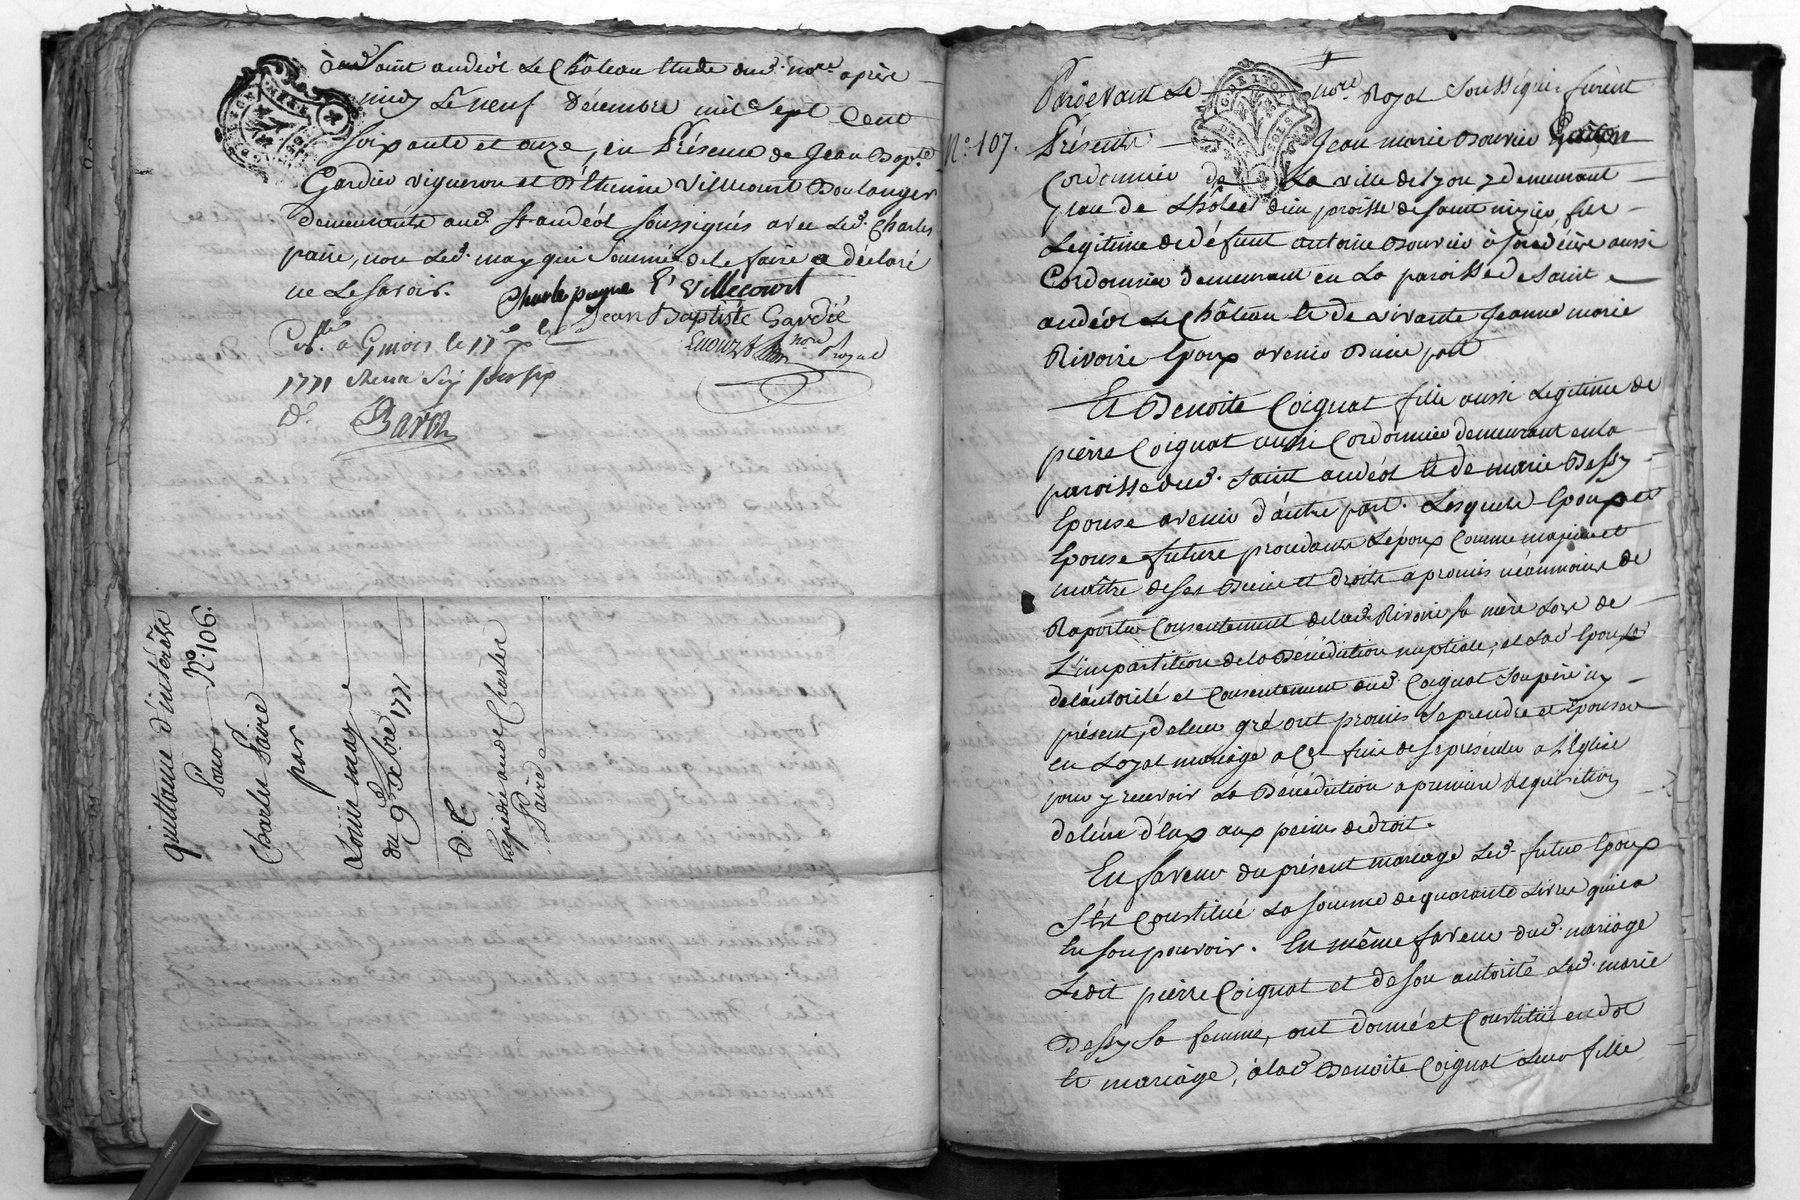 aud. Saint andéol Le Château Etude dud. no.re après
midy Le neuf Décembre mil Sept Cent
soixante et onze, en Présence de Jean Bap.te
Gardier vigneron et D'Etienne Villecourt Boulanger
demeurants aud. St andéol soussignés avec Led. Charles
paire, non Led. may qui Sommé de le faire a déclaré
ne Le savoir.
Charle payre E Villecourt
Jean Baptiste Gardié
no.re Royal
à Givors le 17
1771
Baron
quittance d'intérêts
Pour N.° 106.
Charles Paire
par
Louis may
du 9e Xbre 1771
d. C.
Expédiée aud. Charles
Paire
N.° 107.
Pardevant Le no.re Royal Soussigné furent
Présents Jean marie Bouvier Garçon
Cordonnier de La ville de Lyon y demeurant
place de L'hôtel dieu paroisse de saint nizier, fils
Legitime de défunt antoine Bouvier à son décès aussi
Cordonnier demeurant en La paroisse de Saint
andéol Le Château et de vivante Jeanne marie
Rivoire Epoux avenir D'une part
Et Benoite Coignat fille aussi Legitime de
pierre Coignat aussi Cordonnier demeurant en la
paroisse dud. Saint andéol et de marie Dessy
Epouse avenir d'autre part. Lesquels Epoux et
Epouse future procedants L'époux Comme majeur et
maître de ses Biens et droits a promis néanmoins de
Raporter Consentement de lad. Rivoire sa mère Lors de
L'impartition de la Bénédiction nuptiale, et Lad. Epouse
de l'autorité et Consentement dud. Coignat Son père icy
présent, de leur gré ont promis Se prendre et Epouser
en Loyal mariage a Ces fins de se présenter a L'Eglise
pour y recevoir La Bénédiction a premiere Requisition
de l'un d'Eux aux peines de droit.
En faveur du présent mariage Led. futur Epoux
S'est Constitué La Somme de quarante Livres qu'il a
En Son pouvoir. En même faveur dud. mariage
Ledit pierre Coignat et de Son autorité Lad. marie
Dessy Sa femme, ont donné et Constitué en dot
et mariage, à lad. Benoite Coignat Leur fille